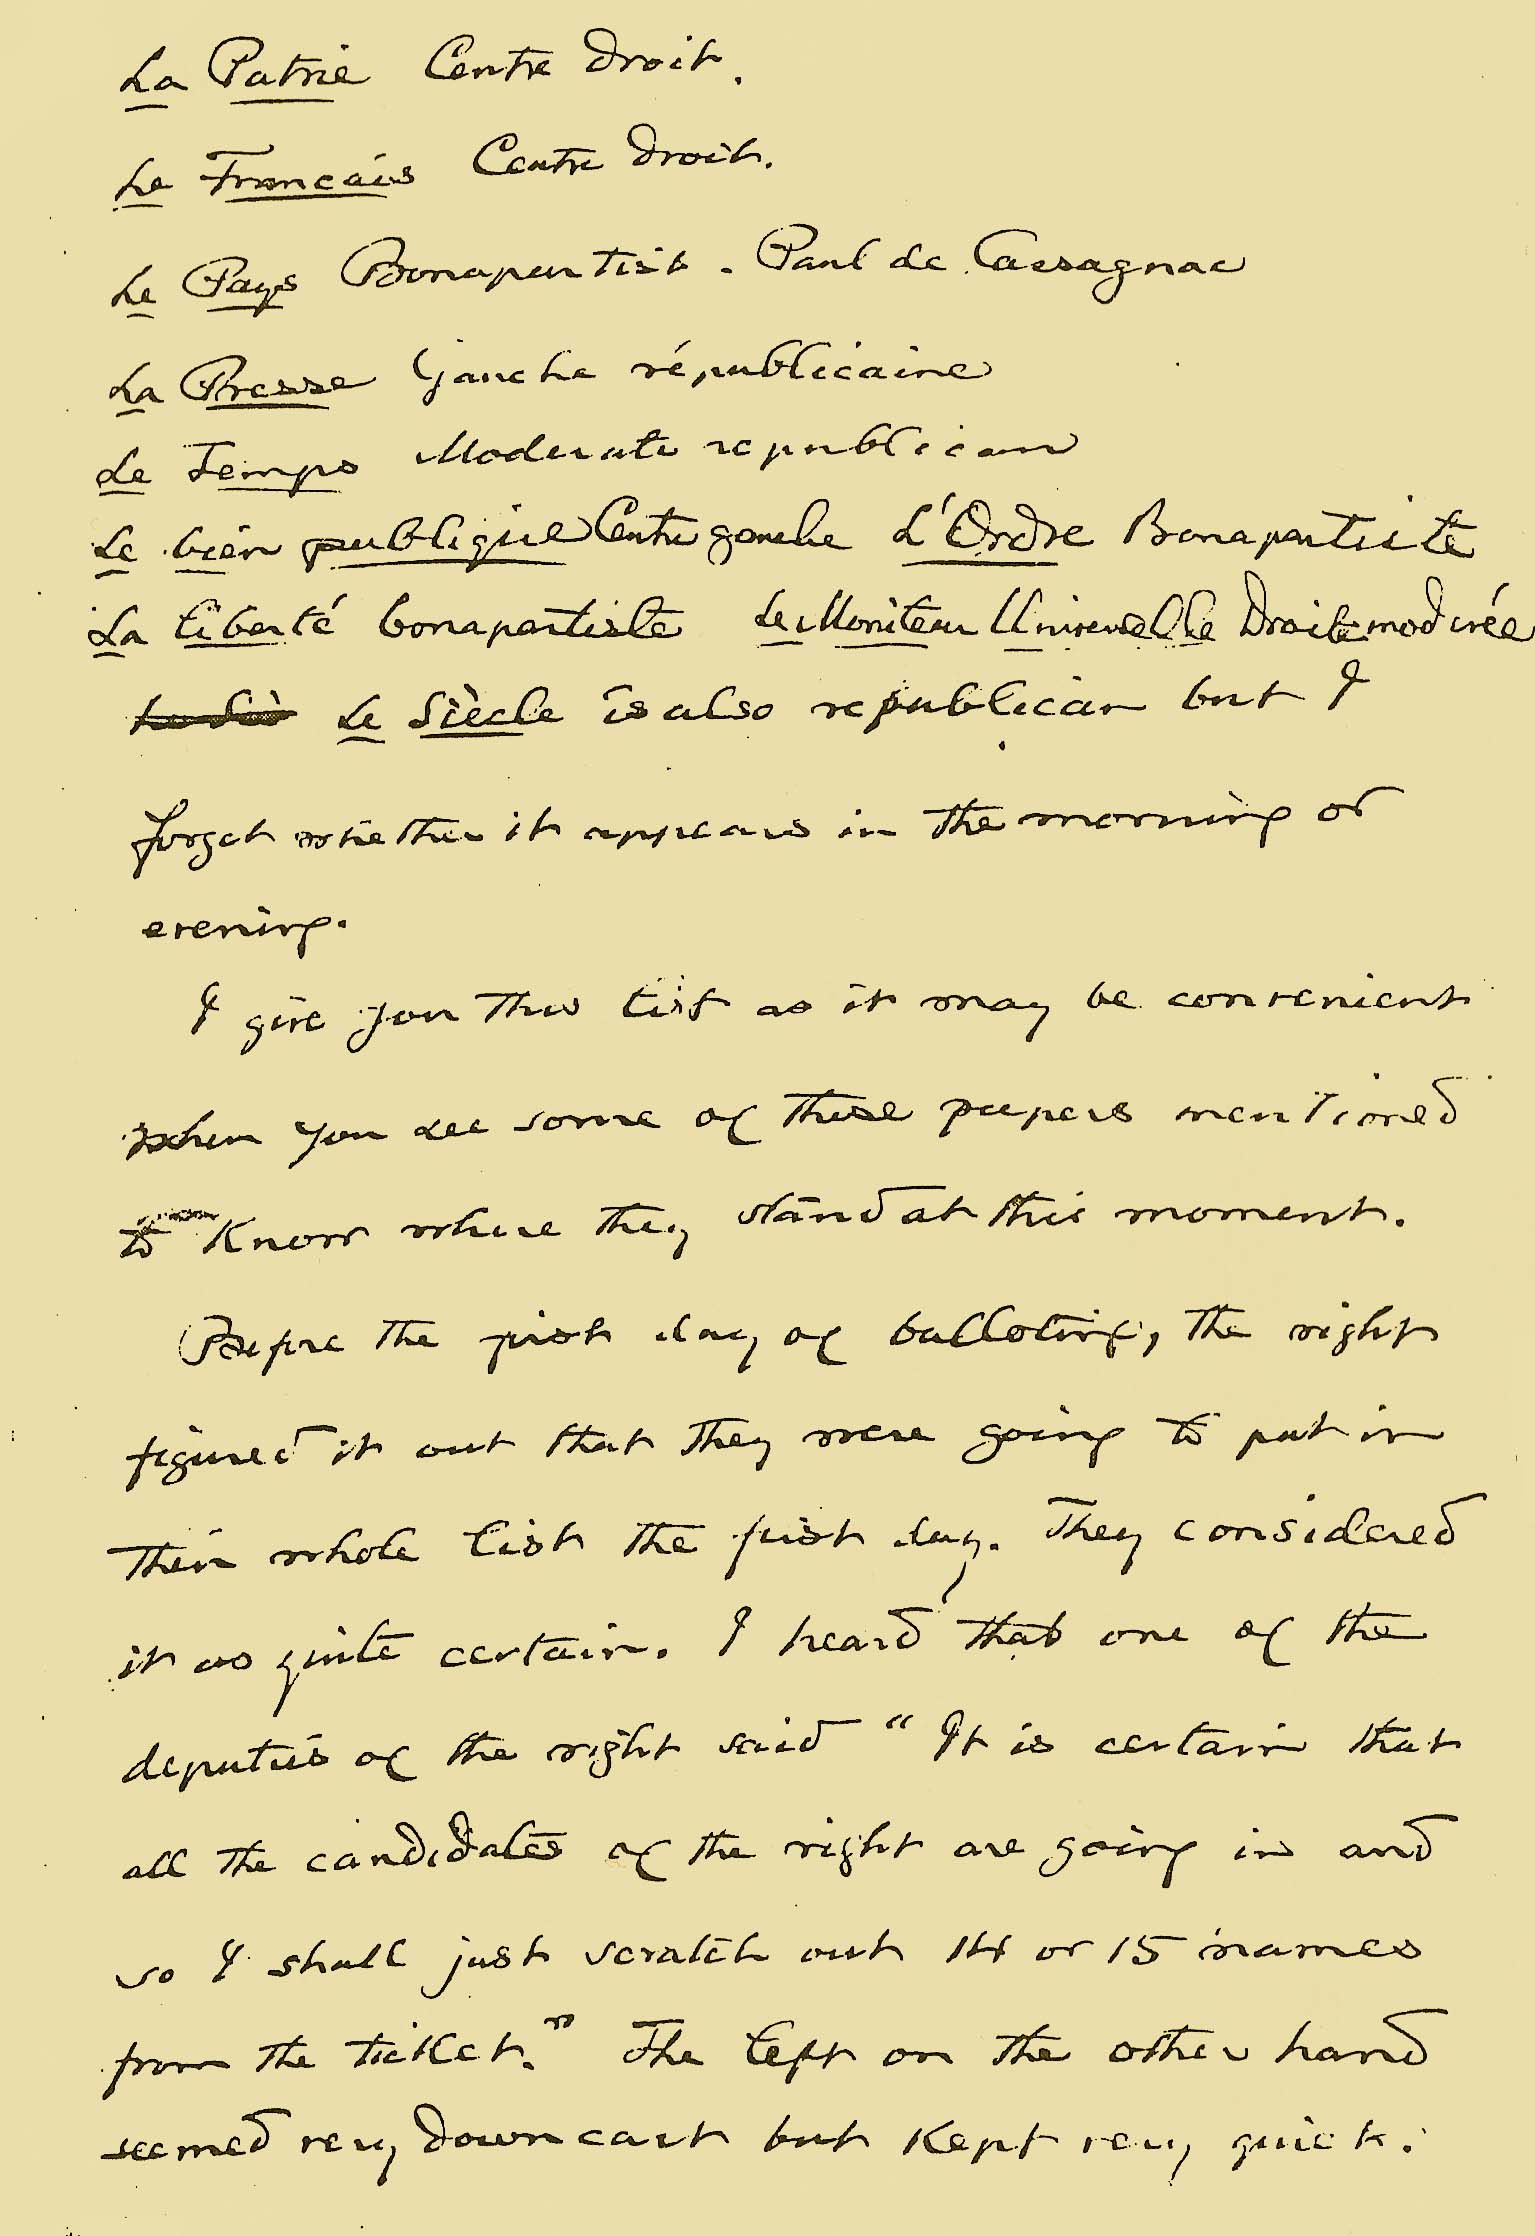 La Patrie Centre droit.
Le Francais Centre droit.
Le Pays Bonapartist. Paul de Cassagnac
La Presse Gauche républicaine
Le Temps Moderate republican
Le bien publique Centre gauche L'Ordre Bonapartiste
La Liberté bonapartiste Le Moniteur Universelle Droite moderée
Le Siècle is also republican but I
forget whether it appears in the morning or
evening.
I give you this list as it may be convenient
when you see some of these papers mentioned
to know where they stand at this moment.
Before the first day of balloting, the right
figured it out that they were going to put in
their whole list the first day. They considered
it as quite certain. I heard that one of the
deputies of the right said "It is certain that
all the candidates of the right are going in and
so I shall just scratch out 14 or 15 names
from the ticket." The left on the other hand
seemed very downcast but kept very quiet.